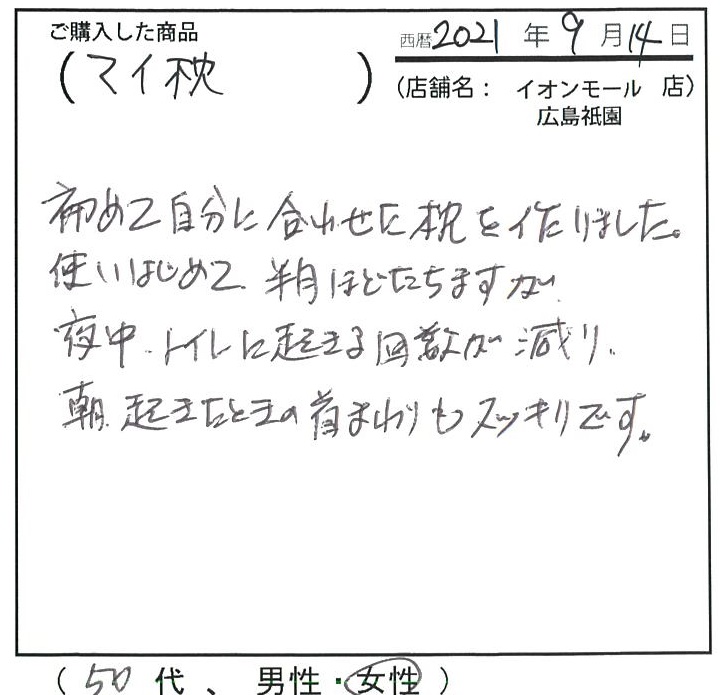 ご購入した商品
(マイ枕)
西暦2021年9月14日
(店舗名: イオンモール 店)
広島祇園
初めて自分に合わせた枕を作りました。
使いはじめて、半月ほどたちますが、
夜中、トイレに起きる回数が減り、
朝、起きたときの首まわりもスッキリです。
(50代、男性・女性)